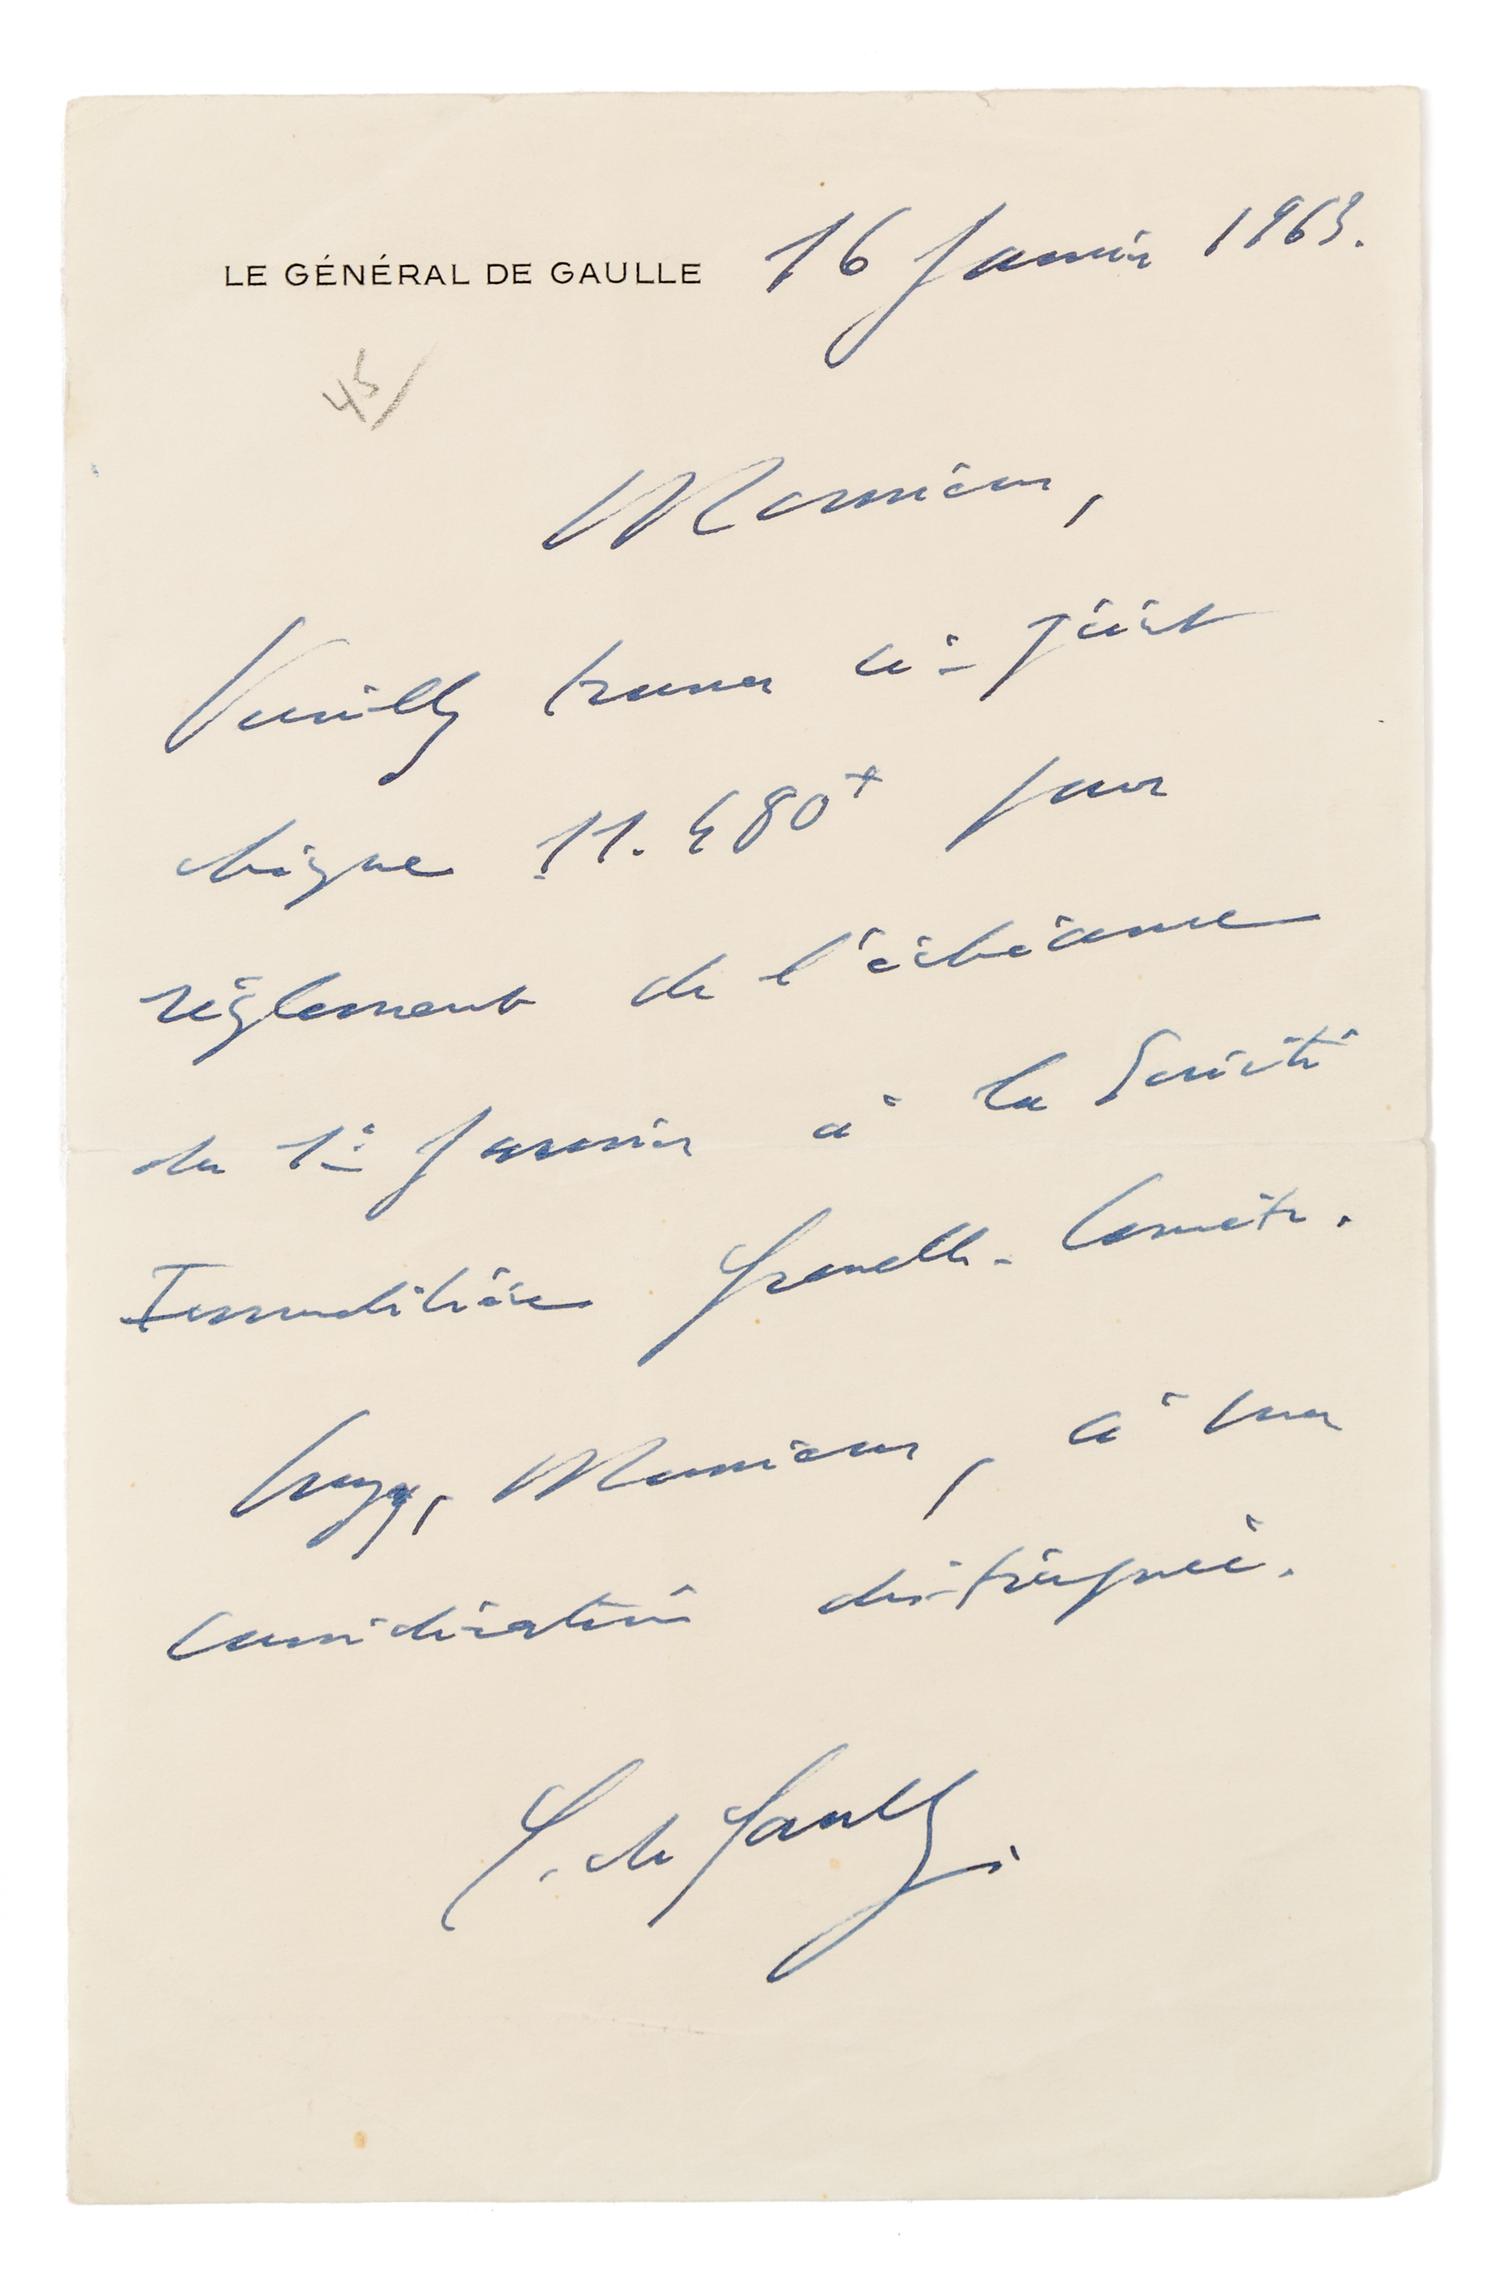 LE GÉNÉRAL DE GAULLE
16 Janvier 1963.
45/
Monsieur,
Veuillez trouver ci-joint
chèque 11.480 F pour
règlement de l'échéance
du 1er Janvier à la Société
Immobilière Grenelle-
Croyez, Monsieur, à ma
considération distinguée.
C. de Gaulle.